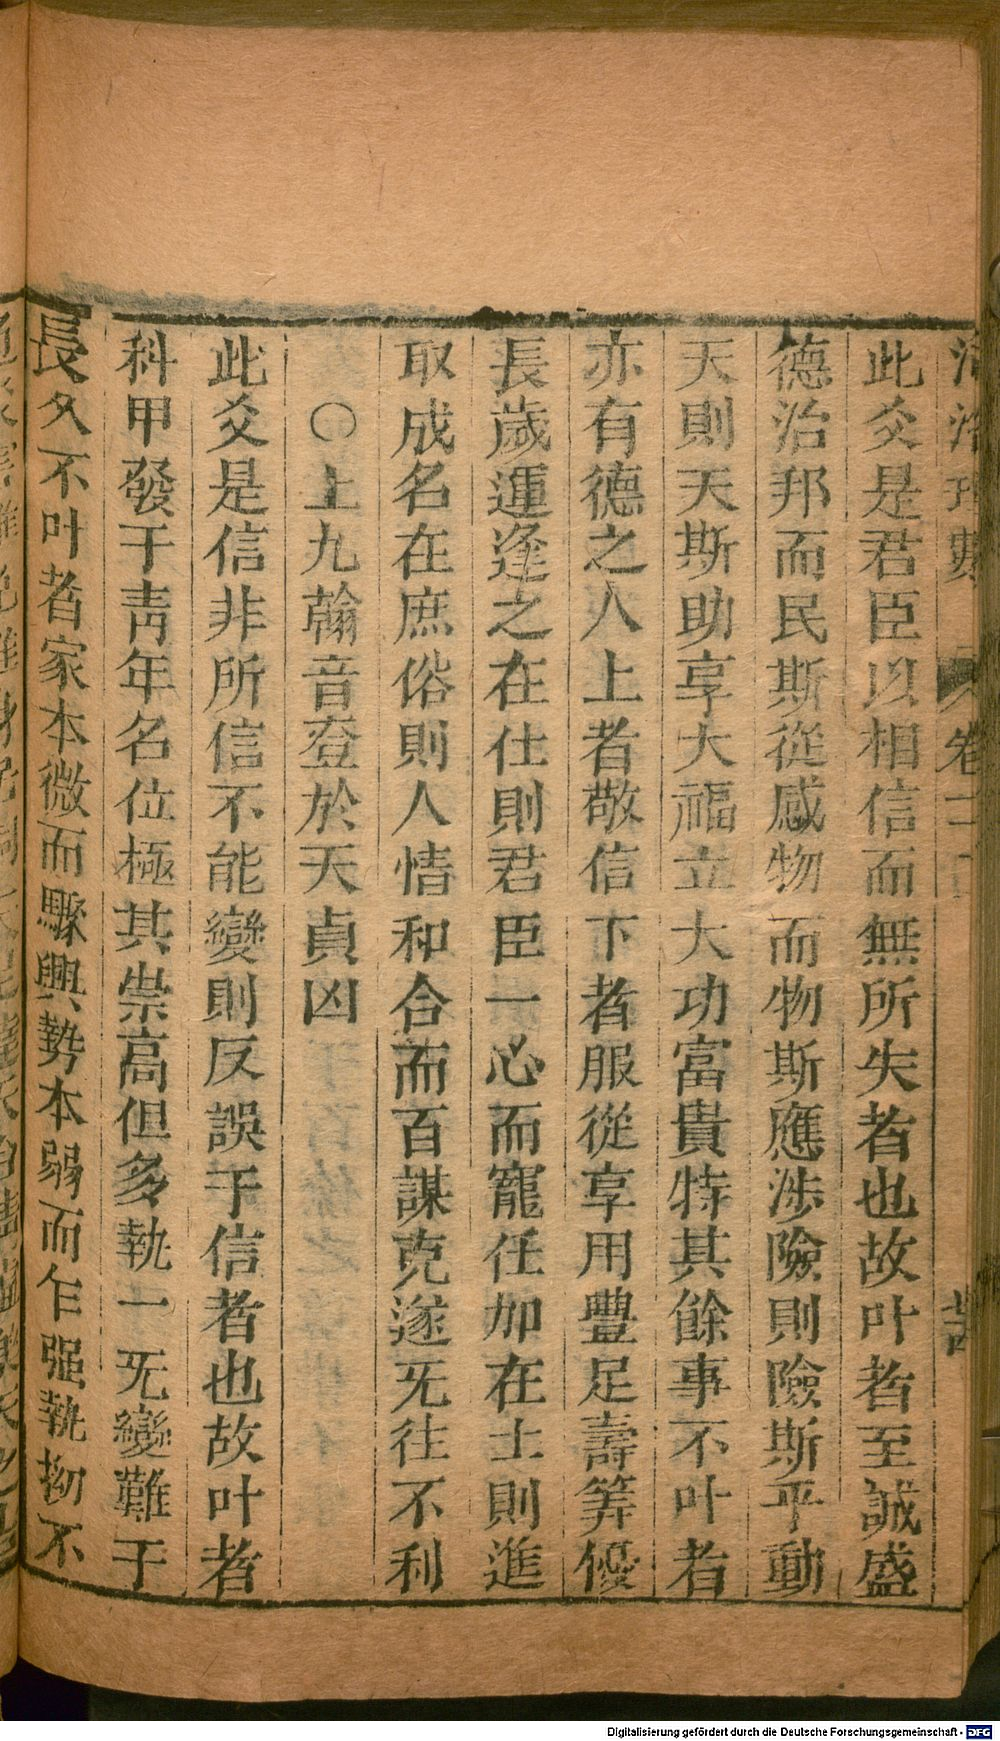 河洛理數 卷二
此爻是君臣以相信而無所失者也故叶者至誠盛
德治邦而民斯從感物而物斯應涉險則險斯平動
天則天斯助享大福立大功富貴特其餘事不叶者
亦有德之人上者敬信下者服從享用豐足壽筭優
長歲運逢之在仕則君臣一心而寵任加在士則進
取成名在庶俗則人情和合而百謀克遂旡往不利
〇上九翰音登於天貞凶
此爻是信非所信不能變則反誤于信者也故叶者
科甲發于靑年名位極其崇高但多執一旡變難于
長久不叶者家本微而驟興勢本弱而乍强執拗不
Digitalisierung gefördert durch die Deutsche Forschungsgemeinschaft - DFG